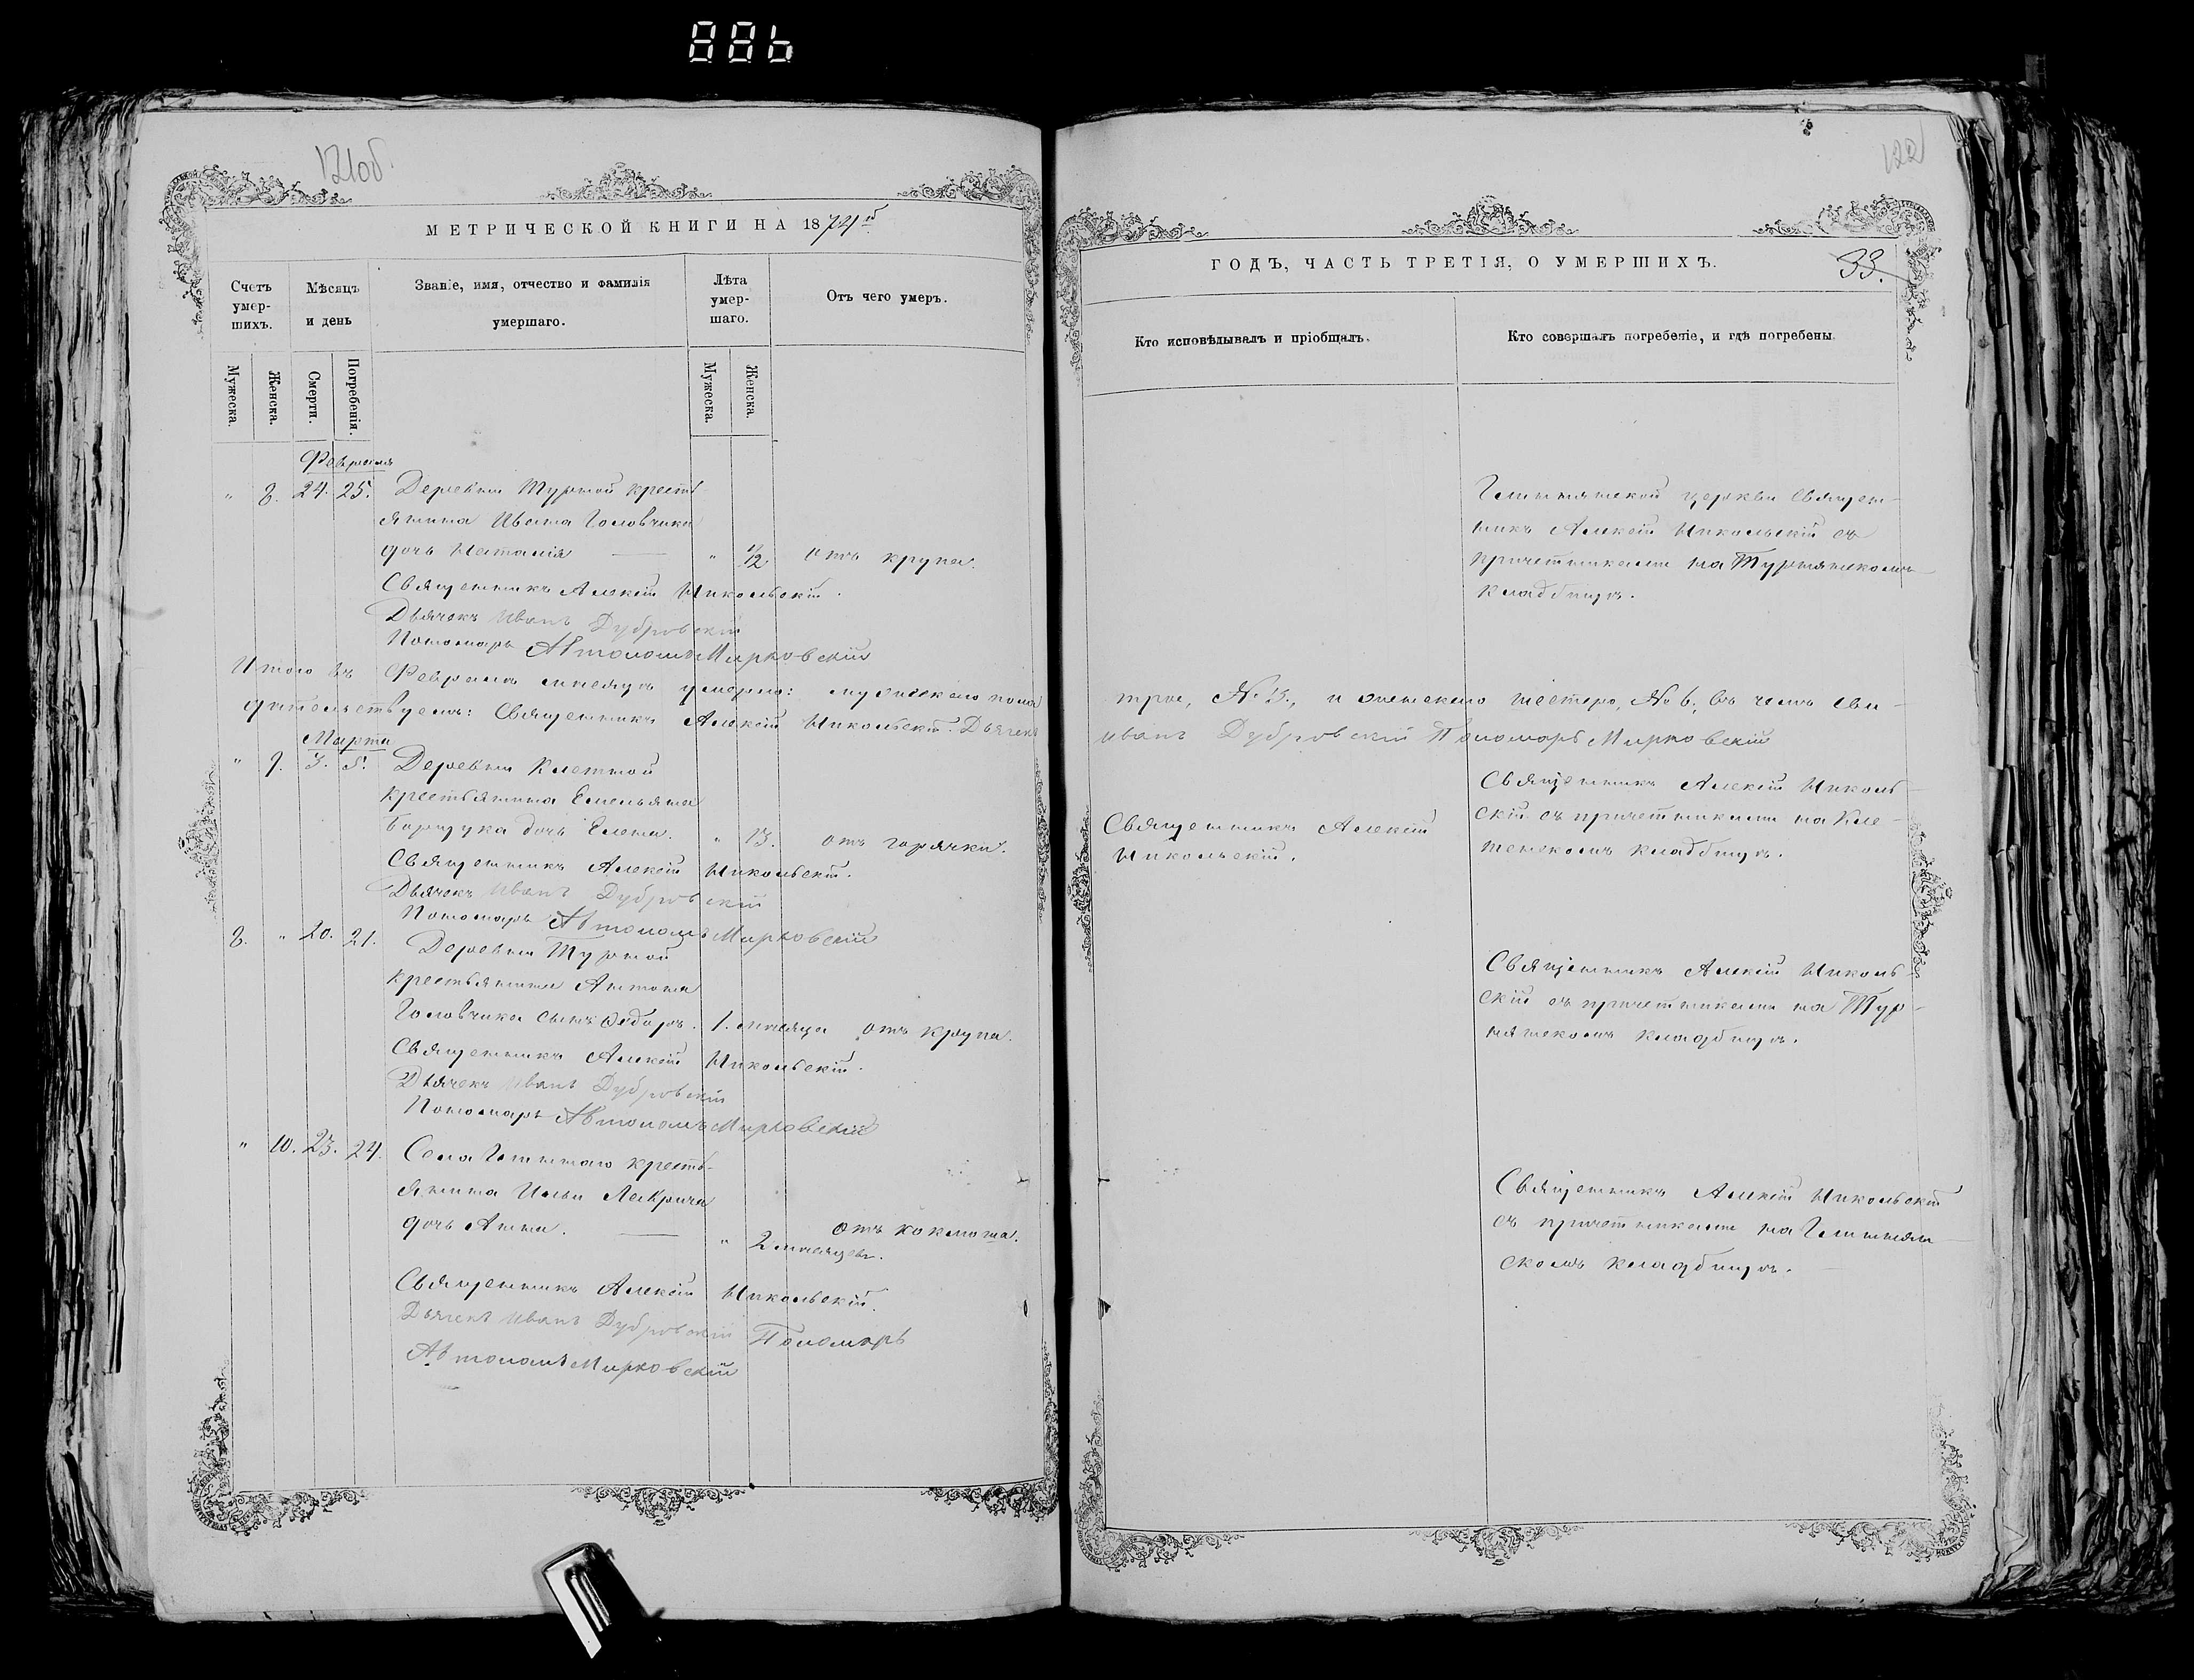 886
121об
МЕТРИЧЕСКОЙ КНИГИ НА 1874й
Счетъ умер-шихъ.
Мѣсяцъ и день
Званіе, имя, отчество и фамилія умершаго.
Лѣта умер-шаго.
Отъ чего умеръ.
Мужеска.
Женска.
Смерти.
Погребенія.
Мужеска.
Женска.
Февраля
" 8. 24. 25. Деревни Турной кресть-
янина Ивана Головчика
дочь Наталія — " 1/2 отъ крупа.
Священникъ Алексій Никольскій.
Дьячекъ Иванъ Дубровскій
Пономарь Автономъ Мирковскій
Итого въ Февралѣ мѣсяцѣ умерло: мужескаго пола
дѣтельствуемъ: Священникъ Алексій Никольскій. Дьячекъ
Марта
" 9. 3. 5. Деревни Клетной
крестьянина Емельяна
дочь Елена. " 13. отъ горячки.
Священникъ Алексій Никольскій.
Дьячекъ Иванъ Дубровскій
Пономарь Автономъ Мирковскій
8. " 20. 21. Деревни Турной
крестьянина Антона
Головчика сынъ Ѳедоръ. 1. мѣсяца отъ крупа.
Священникъ Алексій Никольскій.
Дьячекъ Иванъ Дубровскій
Пономарь Автономъ Мирковскій
" 10. 23. 24. Села кресть-
янина Ильи
дочь Анна. — " 2 мѣсяцевъ. отъ коклюша.
Священникъ Алексій Никольскій.
Дьячекъ Иванъ Дубровскій Пономарь
Автономъ Мирковскій
122
ГОДЪ, ЧАСТЬ ТРЕТІЯ, О УМЕРШИХЪ.
33.
Кто исповѣдывалъ и пріобщалъ.
Кто совершалъ погребеніе, и гдѣ погребены.
церкви священ-
никъ Алексій Никольскій съ
причетниками на Турнянскомъ
кладбищѣ.
трое, №3., и женскаго шестеро, №6., въ чемъ сви-
Иванъ Дубровскій Пономарь Мирковскій
Священникъ Алексій
Никольскій.
Священникъ Алексій Николь-
скій съ причетниками на Кле-
тенскомъ кладбищѣ.
Священникъ Алексій Николь-
скій съ причетниками на Тур-
нянскомъ кладбищѣ.
Священникъ Алексій Никольскій
съ причетниками на
скомъ кладбищѣ.